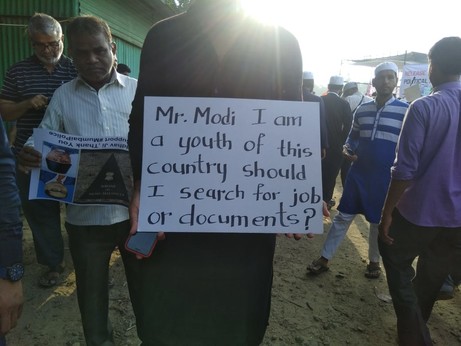 Mr. Modi I am
a youth of this
country should
I search for job
or documents?